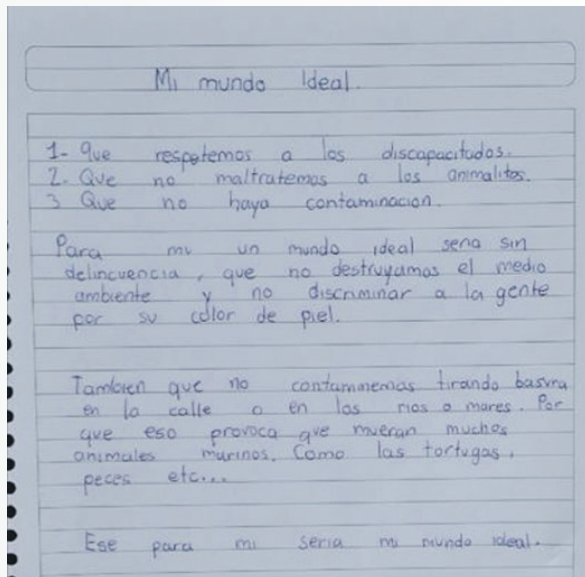 Mi mundo Ideal.
1- Que respetemos a los discapacitados.
2- Que no maltratemos a los animalitos.
3 Que no haya contaminacion.
Para mi un mundo ideal seria sin
delincuencia, que no destruyamos el medio
ambiente y no discriminar a la gente
por su color de piel.
Tambien que no contaminemos tirando basura
en la calle o en los rios o mares. Por
que eso provoca que mueran muchos
animales murinos. Como las tortugas,
peces etc...
Ese para mi seria mi mundo ideal.